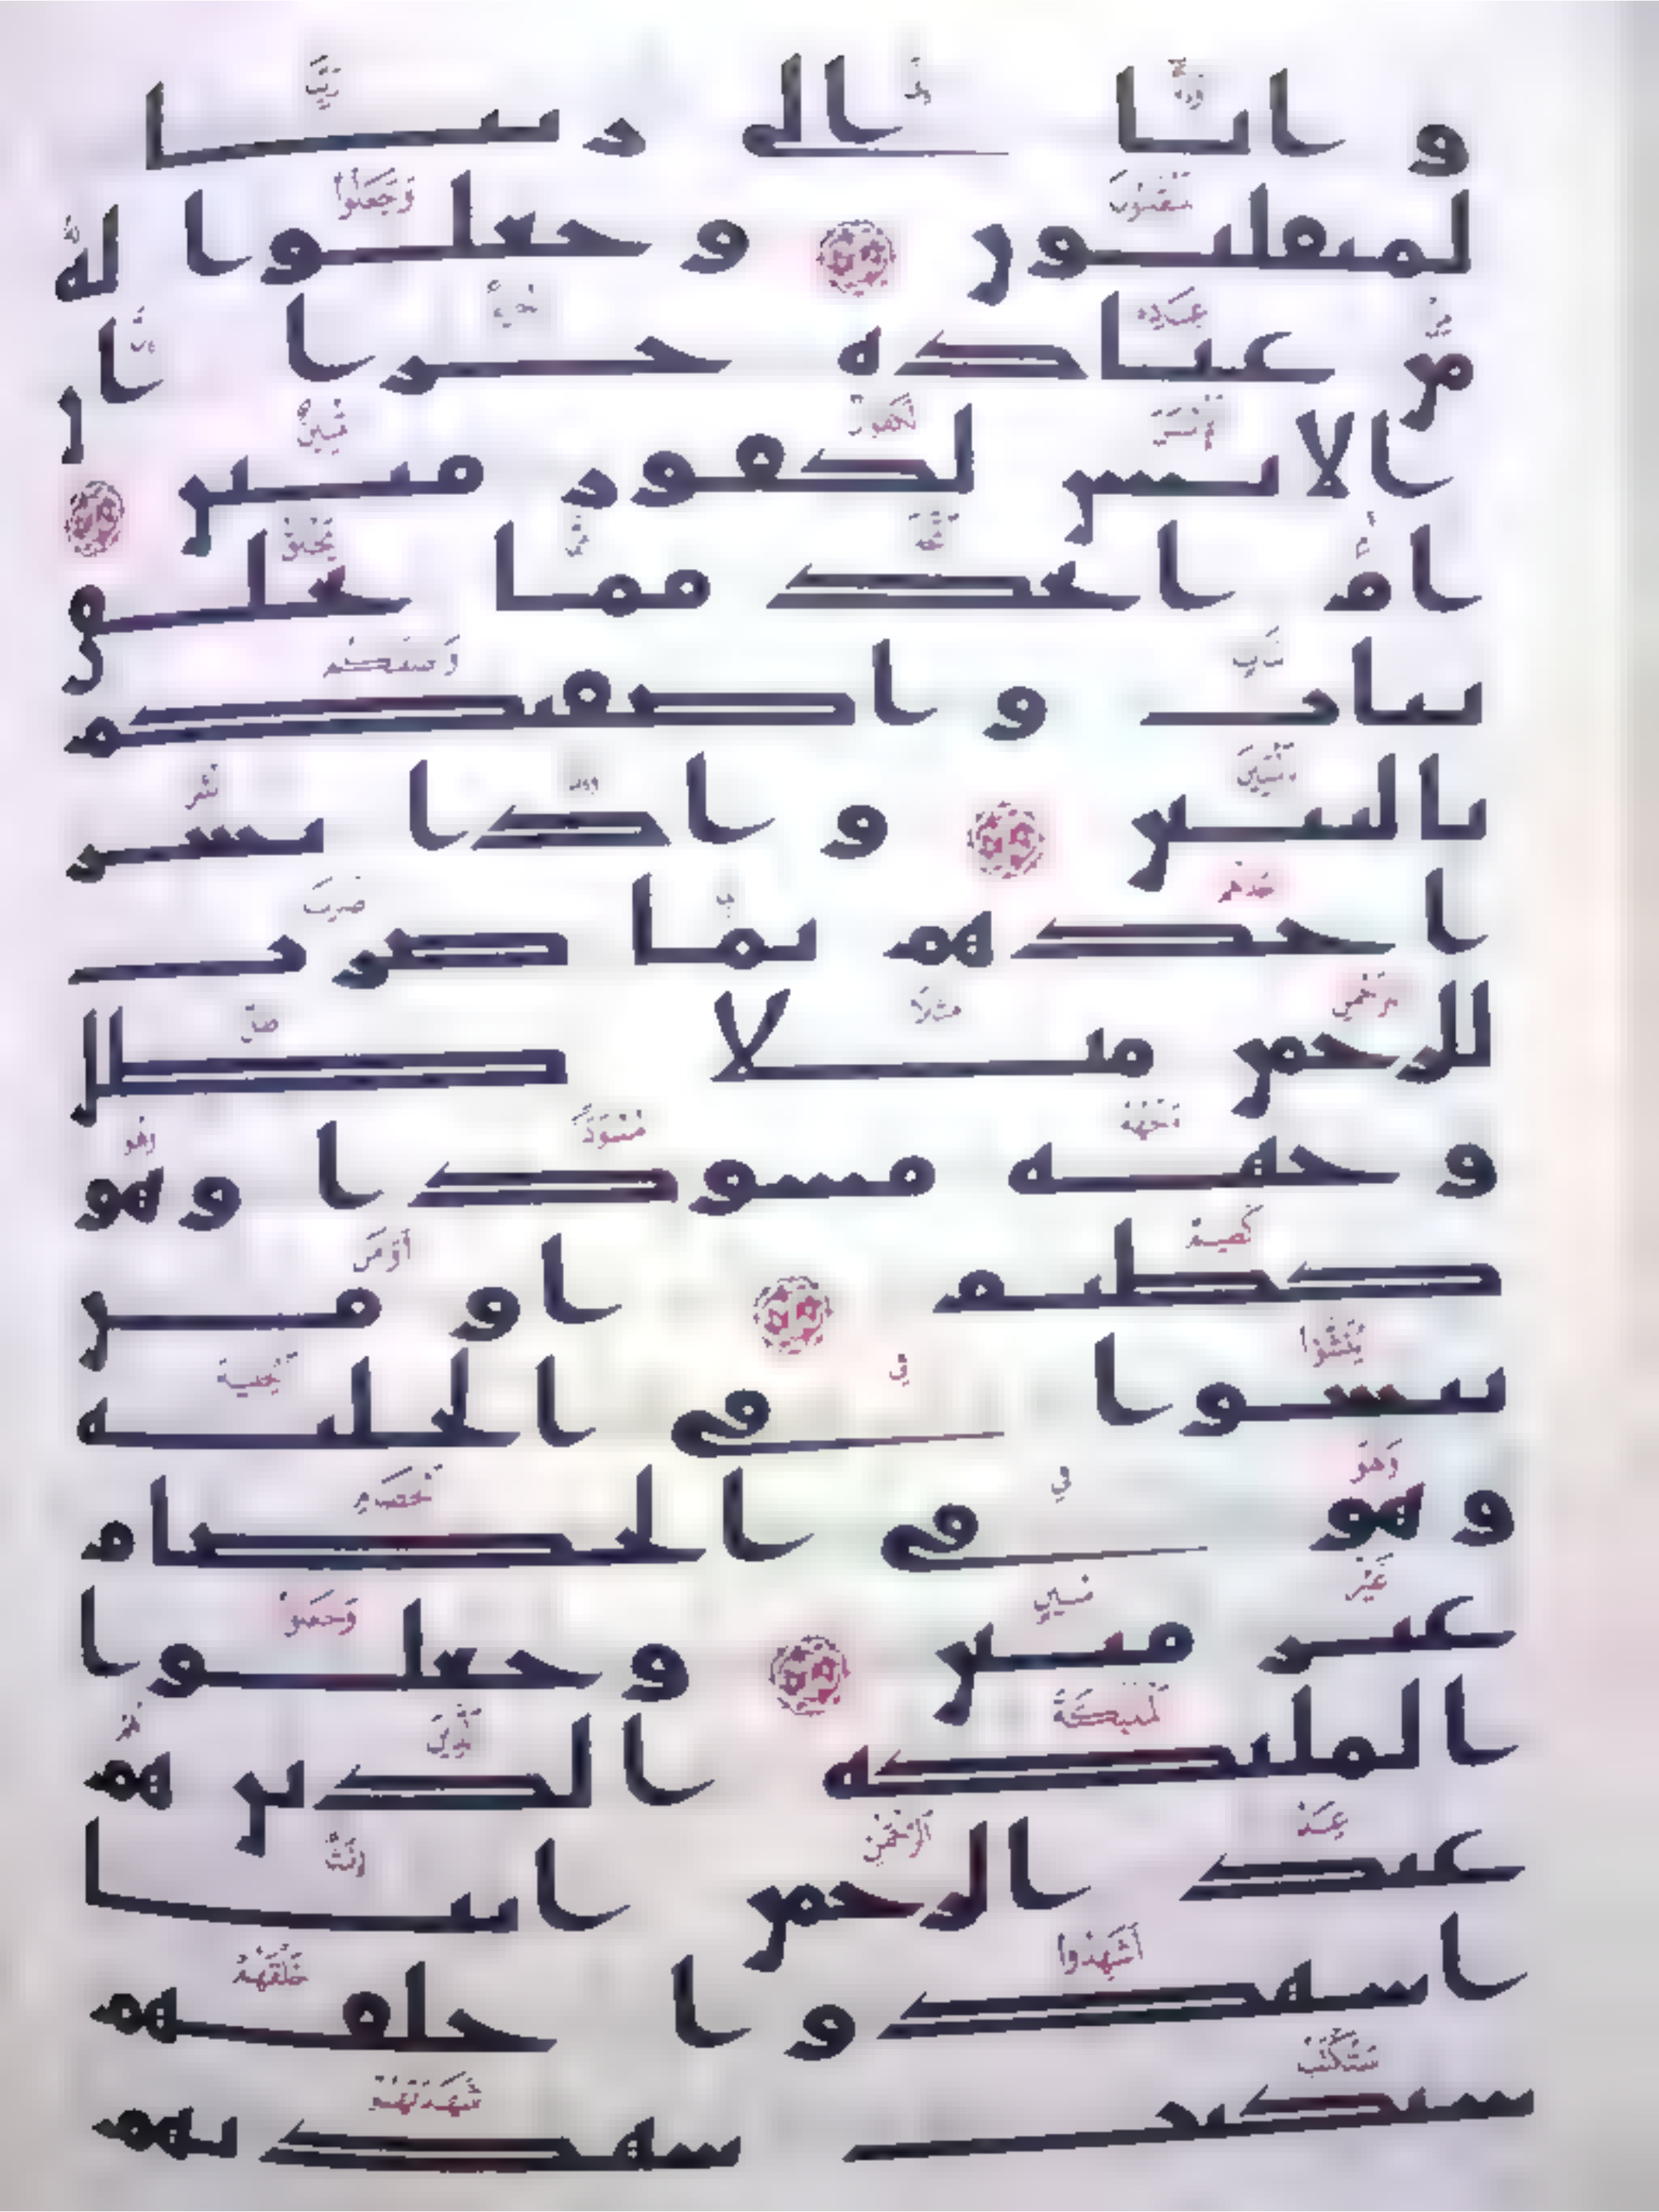 و انا الى ربنا
لمنقلبون و جعلوا له
من عباده جزا ان
الانسن لكفور مبين
ام اتخذ مما يخلق
بنات و اصفيكم
بالبنين و اذا بشر
احدهم بما ضرب
للرحمن مثلا ظل
و جهه مسودا و هو
كظيم او من
ينشوا في الحلية
و هو في الخصام
غير مبين و جعلوا
الملئكة الذين هم
عند الرحمن انثا
اشهدوا خلقهم
ستكتب شهدتهم